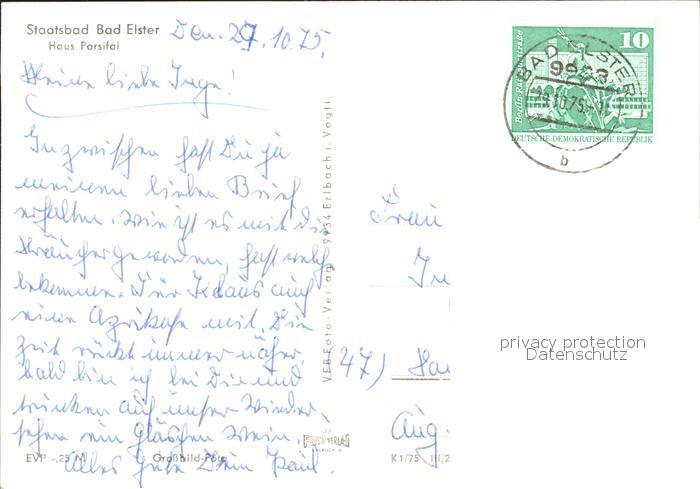 Staatsbad Bad Elster
Haus Parsifal
Den. 27.10.75,
Meine liebe Inge!
Inzwischen hast Du ja
meinen lieben Brief
erhalten. Wie ist es mit die
geworden, hast welche
bekommen. Für Klaus auch
eine mit. Die
Zeit rückt immer näher,
bald bin ich bei Dir und
trinken auf unser Wieder-
sehen ein Gläschen Wein.
Alles Gute Dein Paul.
EVP -,25 M
Großbild-Foto
VEB Foto-Verlag 9934 Erlbach i. Vogtl.
Frau
47)
Aug.
K1/75 III/2
10
Berlin
DEUTSCHE DEMOKRATISCHE REPUBLIK
BAD ELSTER
9933
10.75
b
privacy protection
Datenschutz